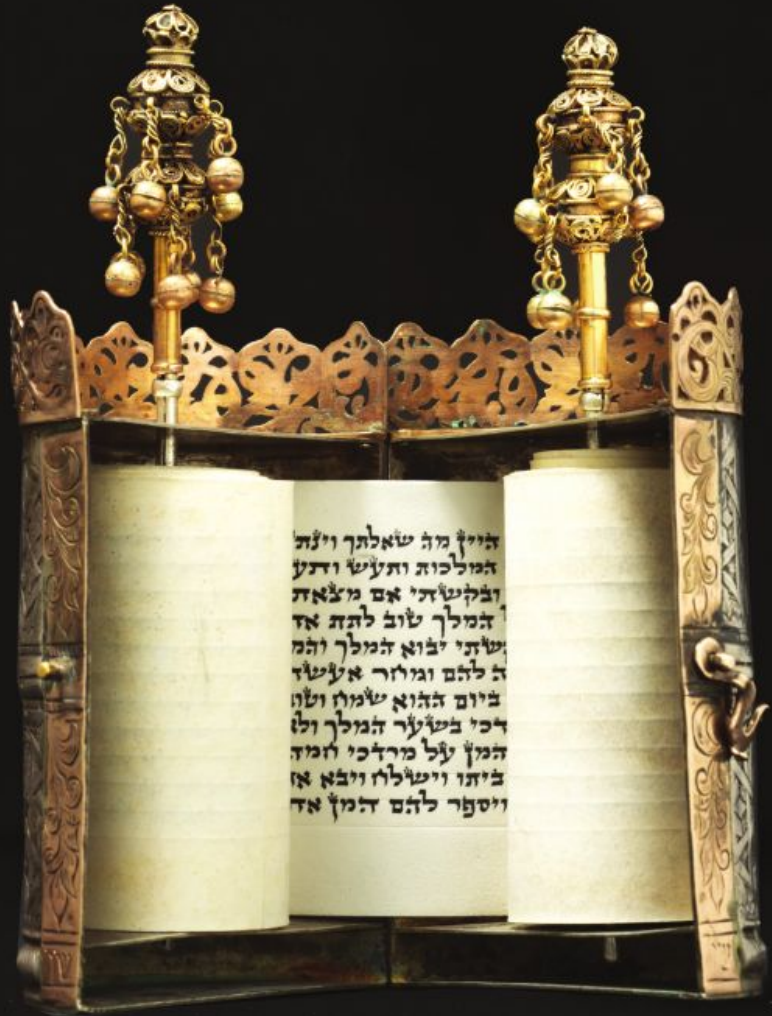 היין מה שאלתך וינת
המלכות ותעש ותע
ובקשתי אם מצאת
המלך טוב לתת את
קשתי יבוא המלך והמ
ה להם ומחר אעשה
ביום ההוא שמח וטו
דכי בשער המלך ולא
המן על מרדכי חמה
ביתו וישלח ויבא את
ויספר להם המן את